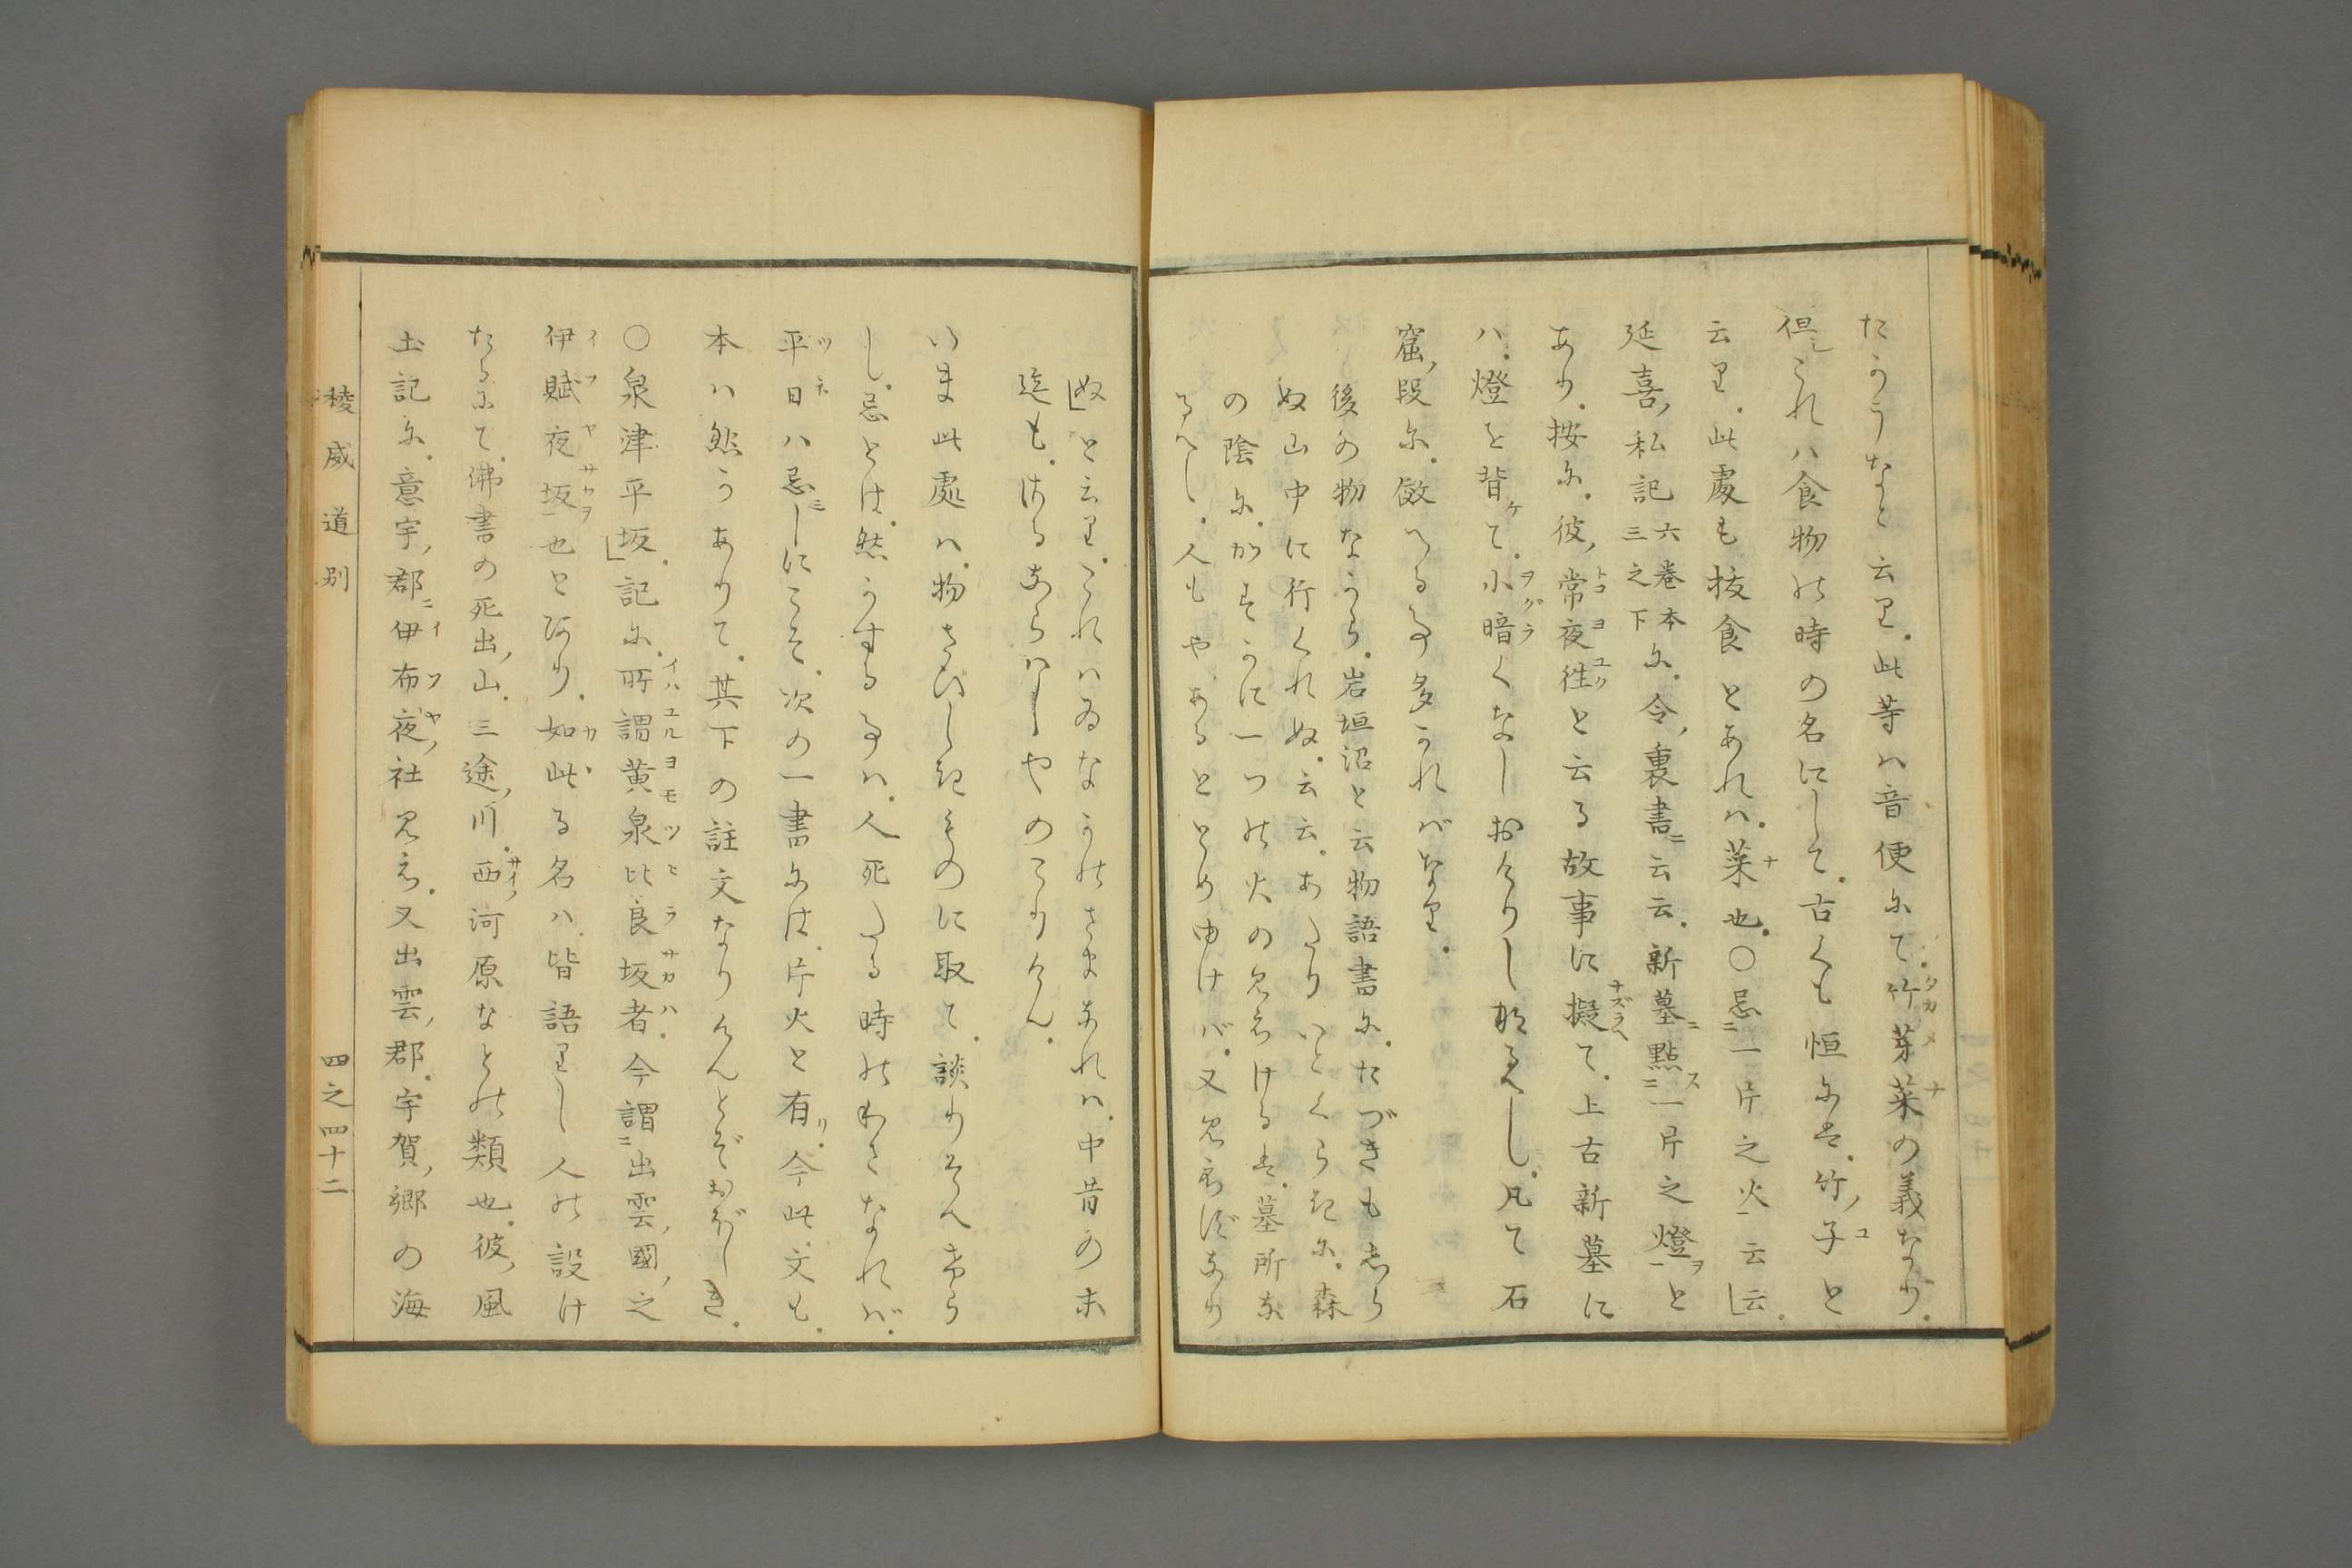 たかうなと云里。此等ハ音便尓て。竹芽菜の義なり。
但しこれハ食物の時の名にして。古くも恒尓は。竹子と
云里。此處も抜食とあれハ。菜也。○忌一片之火云云。
延喜私記六巻本三之下尓。今裏書云云。新墓點一片之燈と
あり。按尓。彼常夜往と云る故事に擬て。上古新墓に
ハ。燈を背て。小暗くなしおけりし なるべし。凡て石
窟段尓。倣へる事多かれバなり。
後の物ながら。岩垣沼と云物語書尓。たづきも志ら
ぬ山中に行くれぬ。云云。あたりいとくらき尓。森
の陰尓。かすかに一つの火の見えけるは。墓所な
るべし。人もやあるととめゆけバ。又見えずなり
ぬと云里。これハゐなかのさまなれハ。中昔の末
迄も。はるならハしやのこりけん。
いま此處ハ。物さびしきものに取て。談りそへけら
し。忌とは。然かする事ハ。人死たる時のわさなれバ。
平日ハ忌しにこそ。次の一書尓は。片火と有。今此文も。
本ハ然かありて。其下の註文なりけんとぞおぼしき。
○泉津平坂。記尓。所謂黄泉比良坂者。今謂出雲國之
伊賦夜坂也とあり。如此る名ハ。皆語里し人の設け
たる尓て。佛書の死出山。三途川。西河原なとの類也。彼風
土記尓。意宇郡伊布夜社見え。又出雲郡。宇賀郷の海
稜威道別
四之四十二